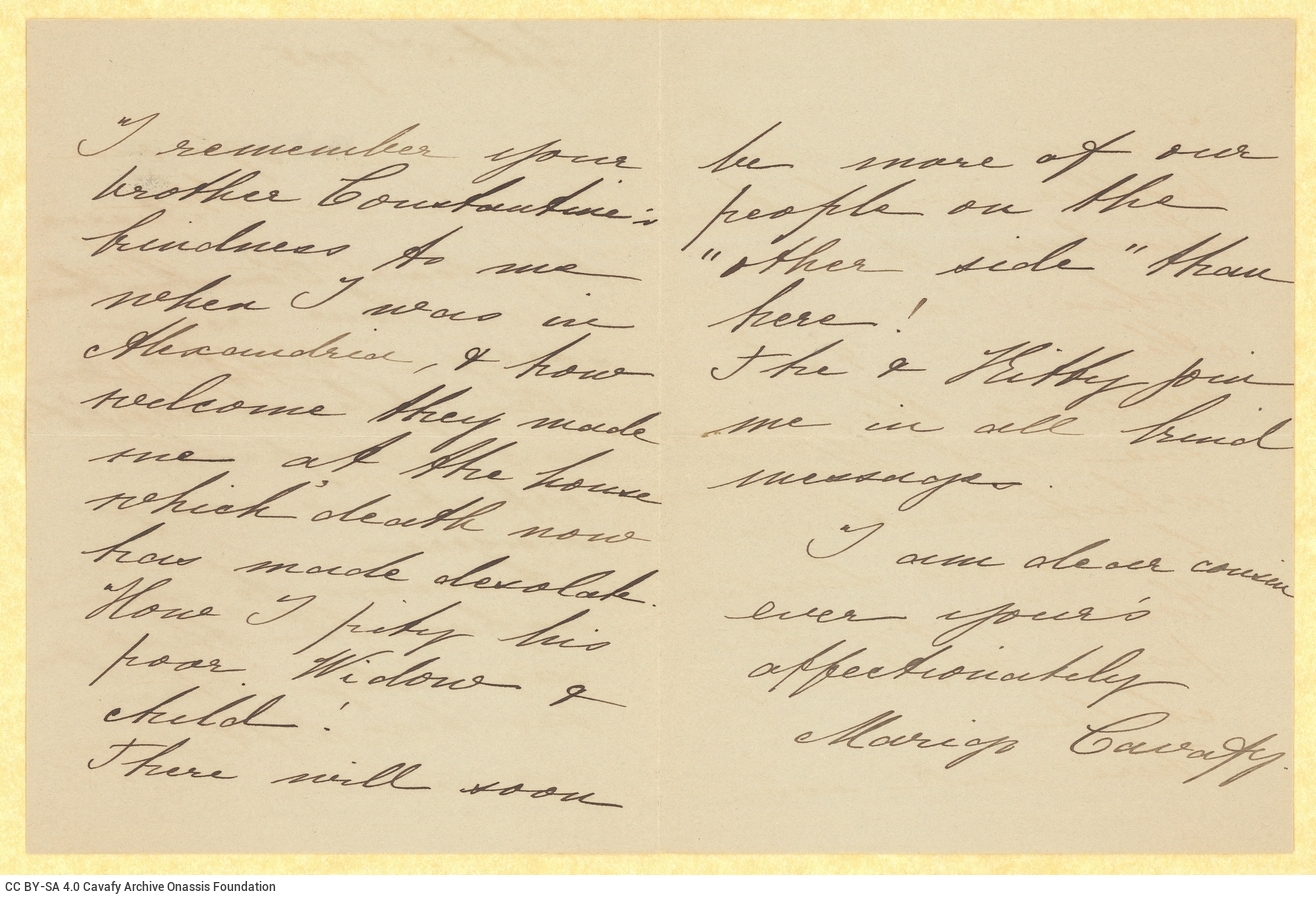 I remember your
brother Constantine's
kindness to me
when I was in
Alexandria, & how
welcome they made
me at the house
which death now
has made desolate.
How I pity his
poor Widow &
child!
There will soon
be more of our
people on the
"other side" than
here!
The & Kitty join
me in all kind
messages.
I am dear cousin
ever your's
affectionately
Marigo Cavafy.
CC BY-SA 4.0 Cavafy Archive Onassis Foundation